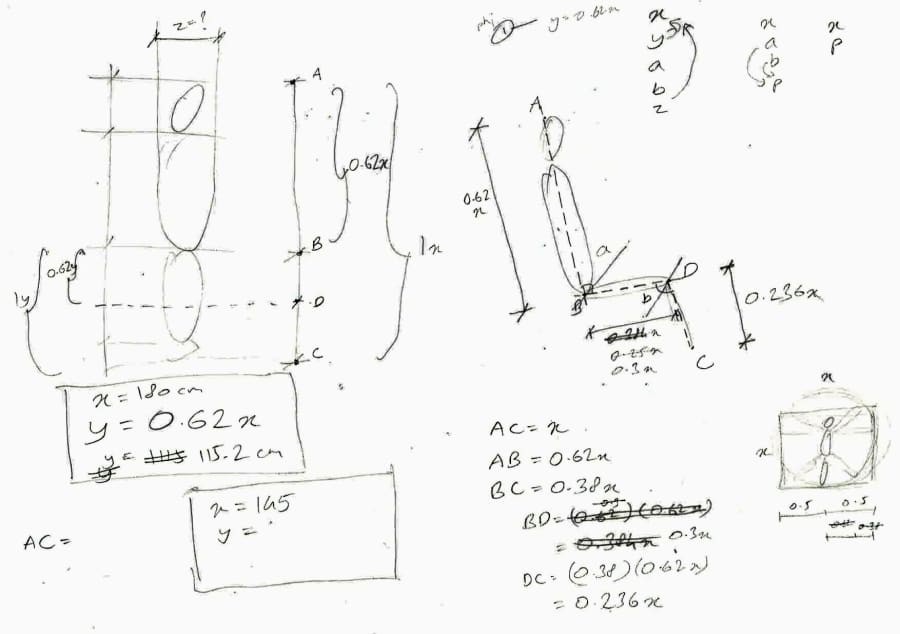 z=?
A
0.62x
B
1x
D
C
0.62y
1y
x = 180 cm
y = 0.62x
y = 115.2 cm
x = 165
y =
AC =
phi
1
y = 0.62x
x
y
a
b
z
x
a
b
p
x
p
A
0.62
x
a
B
b
D
0.236x
0.25x
0.3x
C
AC = x
AB = 0.62x
BC = 0.38x
BD = (0.62)(0.62x)
= 0.384x 0.3x
DC = (0.38)(0.62x)
= 0.236x
x
x
0.5
0.5